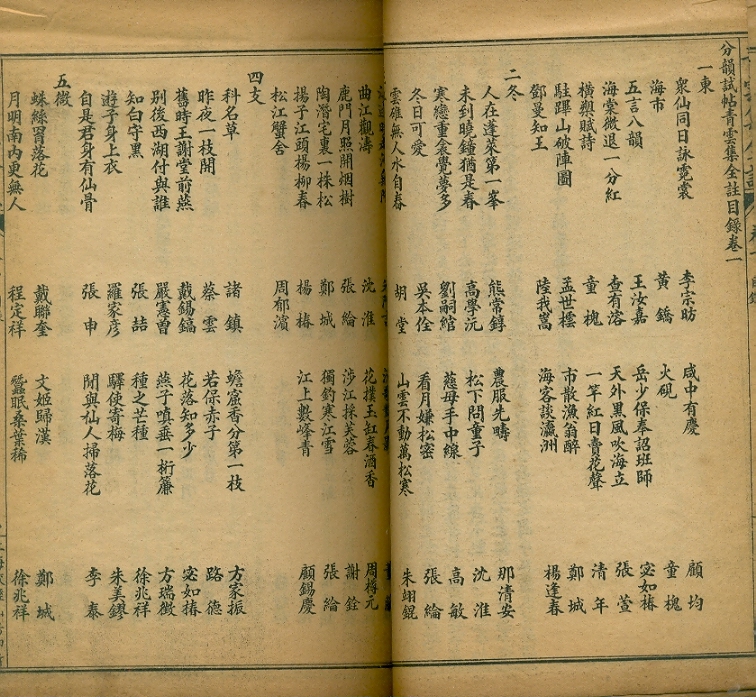 分韻試帖青雲集全註目錄卷一
一東
衆仙同日詠霓裳 李宗昉 咸中有慶 顧均
海市 黃鐈 火硯 童槐
五言八韻 王汝嘉 岳少保奉詔班師 宓如椿
海棠微退一分紅 查有濬 天外黑風吹海立 張萱
橫槊賦詩 童槐 一竿紅日賣花聲 清年
駐蹕山破陣圖 孟世檁 市散漁翁醉 鄭城
鄧曼知王 陸我嵩 海客談瀛洲 楊逢春
二冬
人在蓬萊第一峯 熊常錞 農服先疇 那清安
未到曉鐘猶是春 高學沅 松下問童子 沈淮
寒戀重衾覺夢多 劉嗣綰 慈母手中線 高敏
冬日可愛 吳本佺 看月嫌松密 張綸
雲雄無人水自春 胡堂 山雲不動萬松寒 朱翊錕
曲江觀濤 沈淮 花撲玉缸春酒香 周樽元
鹿門月照開烟樹 張綸 涉江採芙蓉 謝銓
陶潛宅裏一株松 鄭城 獨釣寒江雪 張綸
揚子江頭楊柳春 楊椿 江上數峰青 顧錫慶
松江蟹舍 周郁濱
四支
科名草 諸鎮 蟾窟香分第一枝 方家振
昨夜一枝開 蔡雲 若保赤子 路德
舊時王謝堂前燕 戴錫鎬 花落知多少 宓如椿
別後西湖付與誰 嚴憲曾 燕子嗔垂一桁簾 方瑞徵
知白守黑 張喆 種之芒種 徐兆祥
遊子身上衣 羅家彥 驛使寄梅 朱美鏐
自是君身有仙骨 張申 閒與仙人掃落花 李泰
五微
蛛絲罥落花 戴聯奎 文姬歸漢 鄭城
月明南內更無人 程定祥 蠶眠桑葉稀 徐兆祥